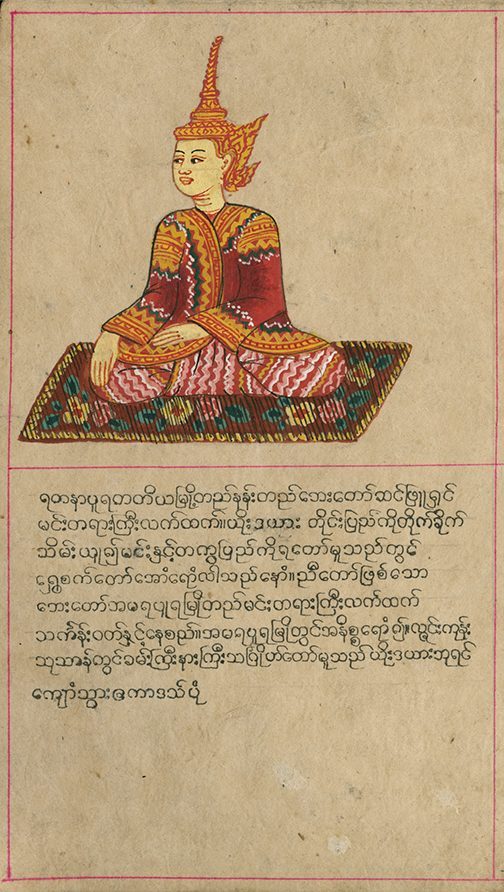 ရတနာပူရတတိယမြို့တည်နန်းတည်ဘေးတော်ဆင်ဖြူရှင်
မင်းတရားကြီးလက်ထက်၊ ယိုးဒယား တိုင်းပြည်ကိုတိုက်ခိုက်
သိမ်းယူ၍မင်းနှင့်တကွပြည်ကိုရတော်မူသည်တွင်
ရွှေစက်တော်အောံရောံလါသည်နောံ။ညီတော်ဖြစ်သော
ဘေးတော်အမရပူရမြို့တည်မင်းတရားကြီးလက်ထက်
သင်္ကန်းဝတ်နှင့်နေစည်။အမရပူရမြို့တွင်အနိစ္စရောံ၍။လွှင်းကုန်း
သုသာန်တွင်ခမ်းကြီးနားကြီးသင်္ဂြိုဟ်တော်မူသည် ယိုးဒယားဘုရင်
ကျော်သွားဧကာဒသ်ပုံ